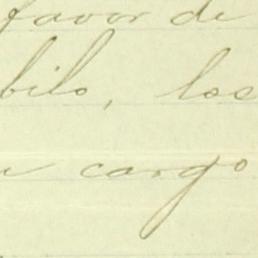 favor de
bilo, los
cargo